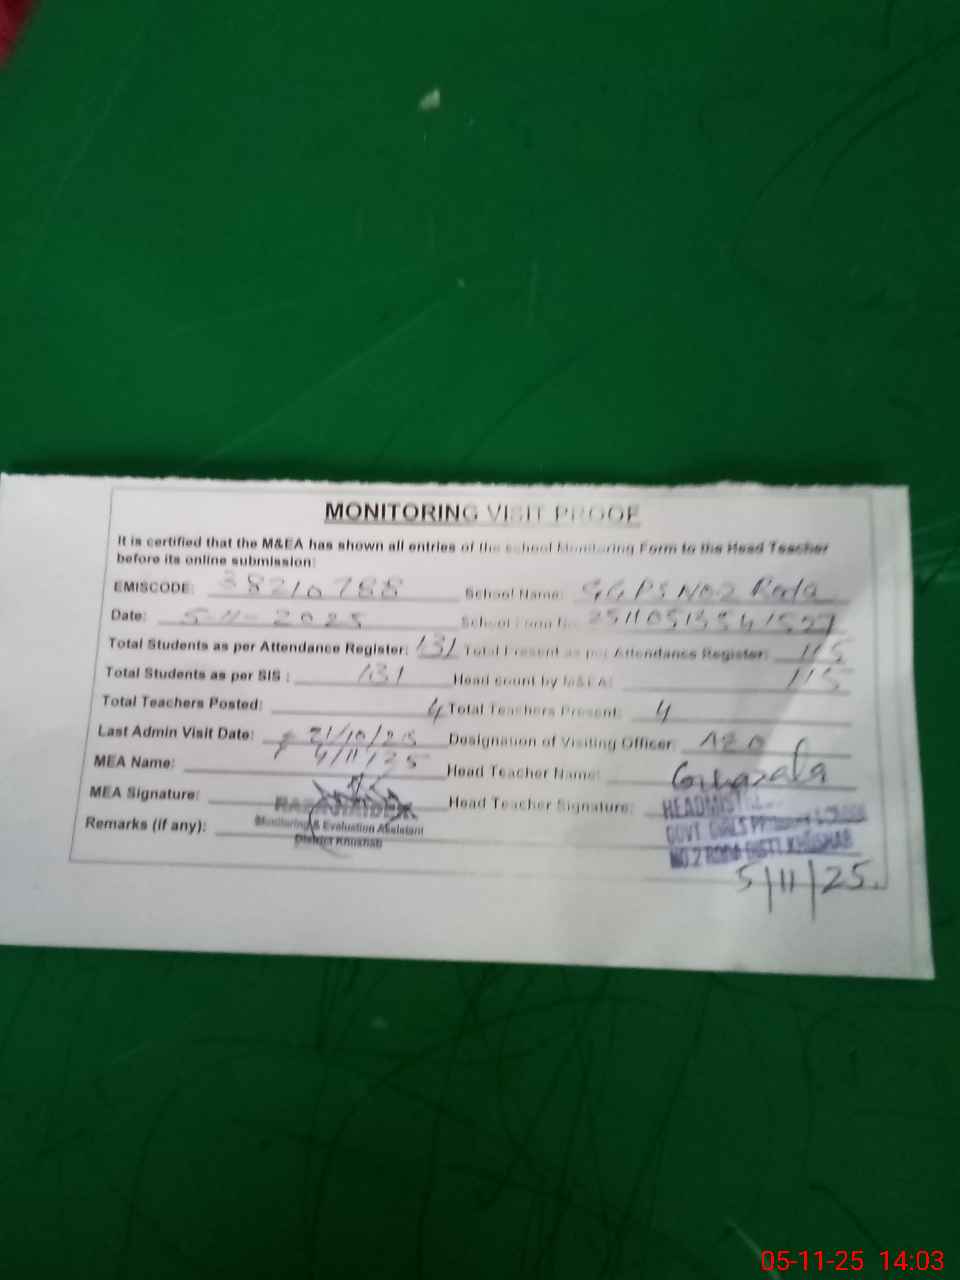 MONITORING VISIT PROOF
It is certified that the M&EA has shown all entries of the school Monitoring Form to the Head Teacher
before its online submission:
EMISCODE: 38210788 School Name: GGPS No.2 Roda
Date: 5-11-2025 School
Total Students as per Attendance Register: 131 Total Present as per Attendance Register: 115
Total Students as per SIS : 131 Head count by M&EA: 115
Total Teachers Posted: 4 Total Teachers Present: 4
Last Admin Visit Date: 21/10/25 Designation of Visiting Officer: AEO
4/11/25
MEA Name: Head Teacher Name: Ghazala
MEA Signature: Head Teacher Signature:
Monitoring & Evaluation Assistant
District Khushab
Remarks (if any):
GOVT GIRLS PRIMARY SCHOOL
NO.2 RODA DISTT. KHUSHAB
5/11/25.
05-11-25 14:03